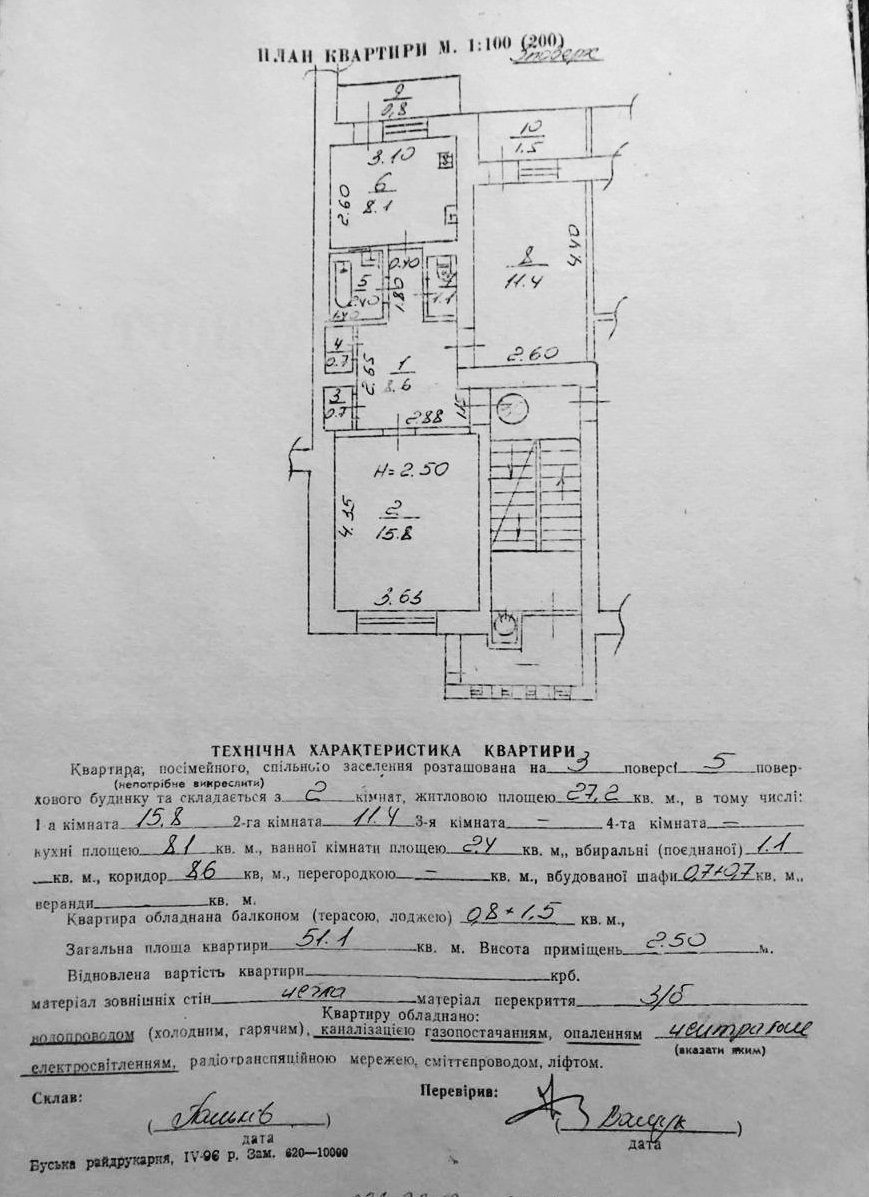 ПЛАН КВАРТИРИ М. 1:100 (200)
3 поверх
9
0,8
10
1.5
3.10
6
8.1
2.60
8
11.4
4.40
2.60
0.40
5
2.40
1.40
1.80
7
1.1
4
0.7
2.65
1
8.6
3
0.7
2.88
1.15
H=2.50
2
15.8
4.35
3.63
ТЕХНІЧНА ХАРАКТЕРИСТИКА КВАРТИРИ
Квартира, посімейного, спільного заселення розташована на 3 поверсі 5 повер-
(непотрібне викреслити)
хового будинку та складається з 2 кімнат, житловою площею 27,2 кв. м., в тому числі:
1-а кімната 15,8 2-га кімната 11.4 3-я кімната – 4-та кімната –
кухні площею 8.1 кв. м., ванної кімнати площею 2.4 кв. м,, вбиральні (поєднаної) 1.1
кв. м., коридор 8.6 кв, м., перегородкою – кв. м., вбудованої шафи 0,7+0,7 кв. м,,
веранди кв. м.
Квартира обладнана балконом (терасою, лоджею) 0,8+1,5 кв. м.,
Загальна площа квартири 51.1 кв. м. Висота приміщень 2.50 м.
Відновлена вартість квартири крб.
матеріал зовнішніх стін цегла матеріал перекриття З/б
Квартиру обладнано:
водопроводом (холодним, гарячим), каналізацією газопостачанням, опаленням
(вказати яким)
електросвітленням, радіотрансляційною мережею, сміттєпроводом, ліфтом.
Склав: Перевірив:
( ) ( )
дата дата
Буська райдрукарня, IV-96 р. Зам. 620—10000